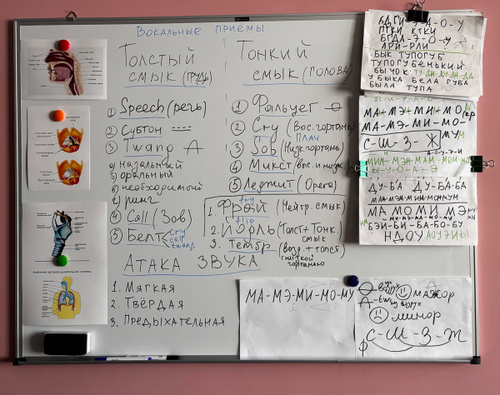 Вокальные приёмы
Толстый
смык (грудь)
① Speech (речь)
② Субтон
③ Twang
а) назальный
б) оральный
в) необходимый
г) ринг
④ Call (Зов)
⑤ Белт cry call twang
Атака звука
1. Мягкая
2. Твёрдая
3. Предыхательная
Тонкий
смык (голова)
① Фальцет
② Cry (Выс. гортань)
Плач
③ Sob (Низк. гортань)
④ Микст
⑤ Легит (Опера)
1. Фрай (Нейтр. смык)
2. Йодль (Толст + Тонк
смык
3. Тембр
МА-МЭ-МИ-МО-МУ
мажор
минор
С-Ш-З-Ж
БЫК ТУПОГУБ
ТУПОГУБЕНЬКИЙ
БЫЧОК
У БЫКА БЕЛА ГУБА
БЫЛА ТУПА
МА-МЭ-МИ-МО-
МУ
С-Ш-З-Ж
ДУ-БА ДУ-БА-БА
МА МО МИ МЭ
БЭ-БИ-БА-БО-БУ